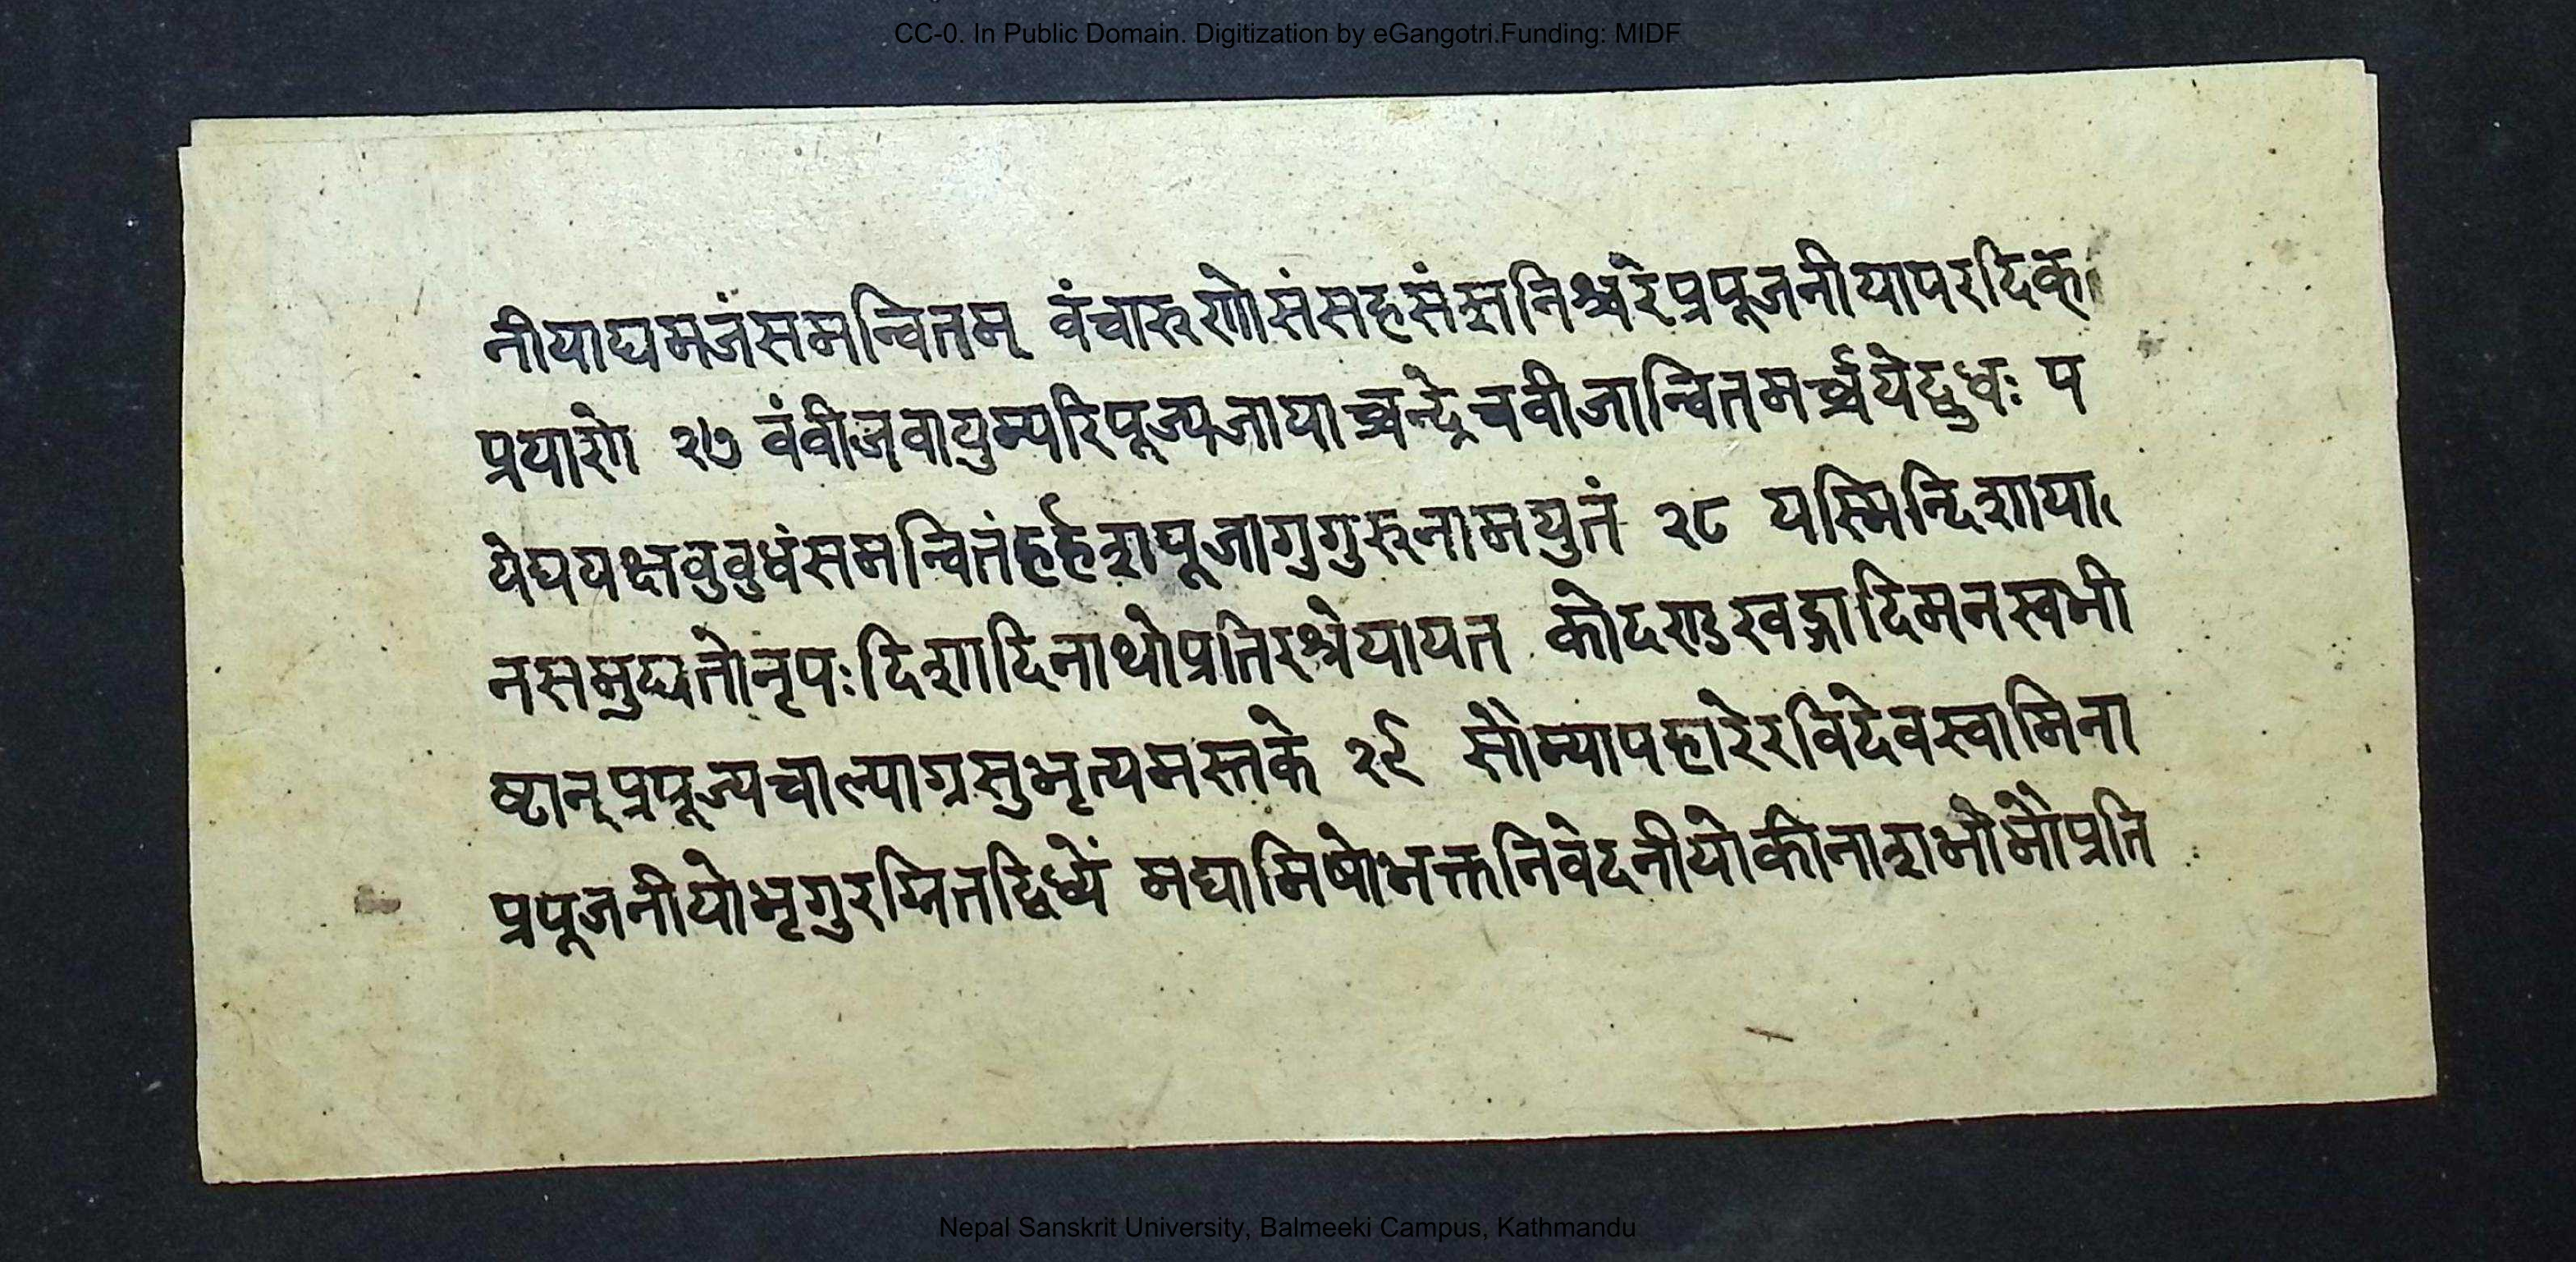 CC-0. In Public Domain. Digitization by eGangotri.Funding: MIDF
नीयाद्यमजंसमन्वितम् वंचारुणोसंसहसंस्रनिश्चरेप्रपूजनीयापरदिक्
प्रयारणे २७ वंवीजवायुम्परिपूज्यजायाच्चन्द्रेचवीजान्वितमर्च्चयेद्बुधः प
येघयक्षवुवुधंसमन्वितंहर्हंशपूजागुगुरुनामयुतं २८ यस्मिन्दिशाया
नसमुद्यतोनृपःदिशादिनाथोप्रतिरश्रेयायत कोदण्डखड्गादिमनस्वभी
ष्टान्प्रपूज्यचाल्याग्रसुभृत्यमस्तके २९ सौम्यापहारेरविदेवस्वामिना
प्रपूजनीयोभृगुरग्नितद्विध्येंं मद्यामिषोभक्तनिवेदनीयोकीनाशभौमौप्रति
Nepal Sanskrit University, Balmeeki Campus, Kathmandu